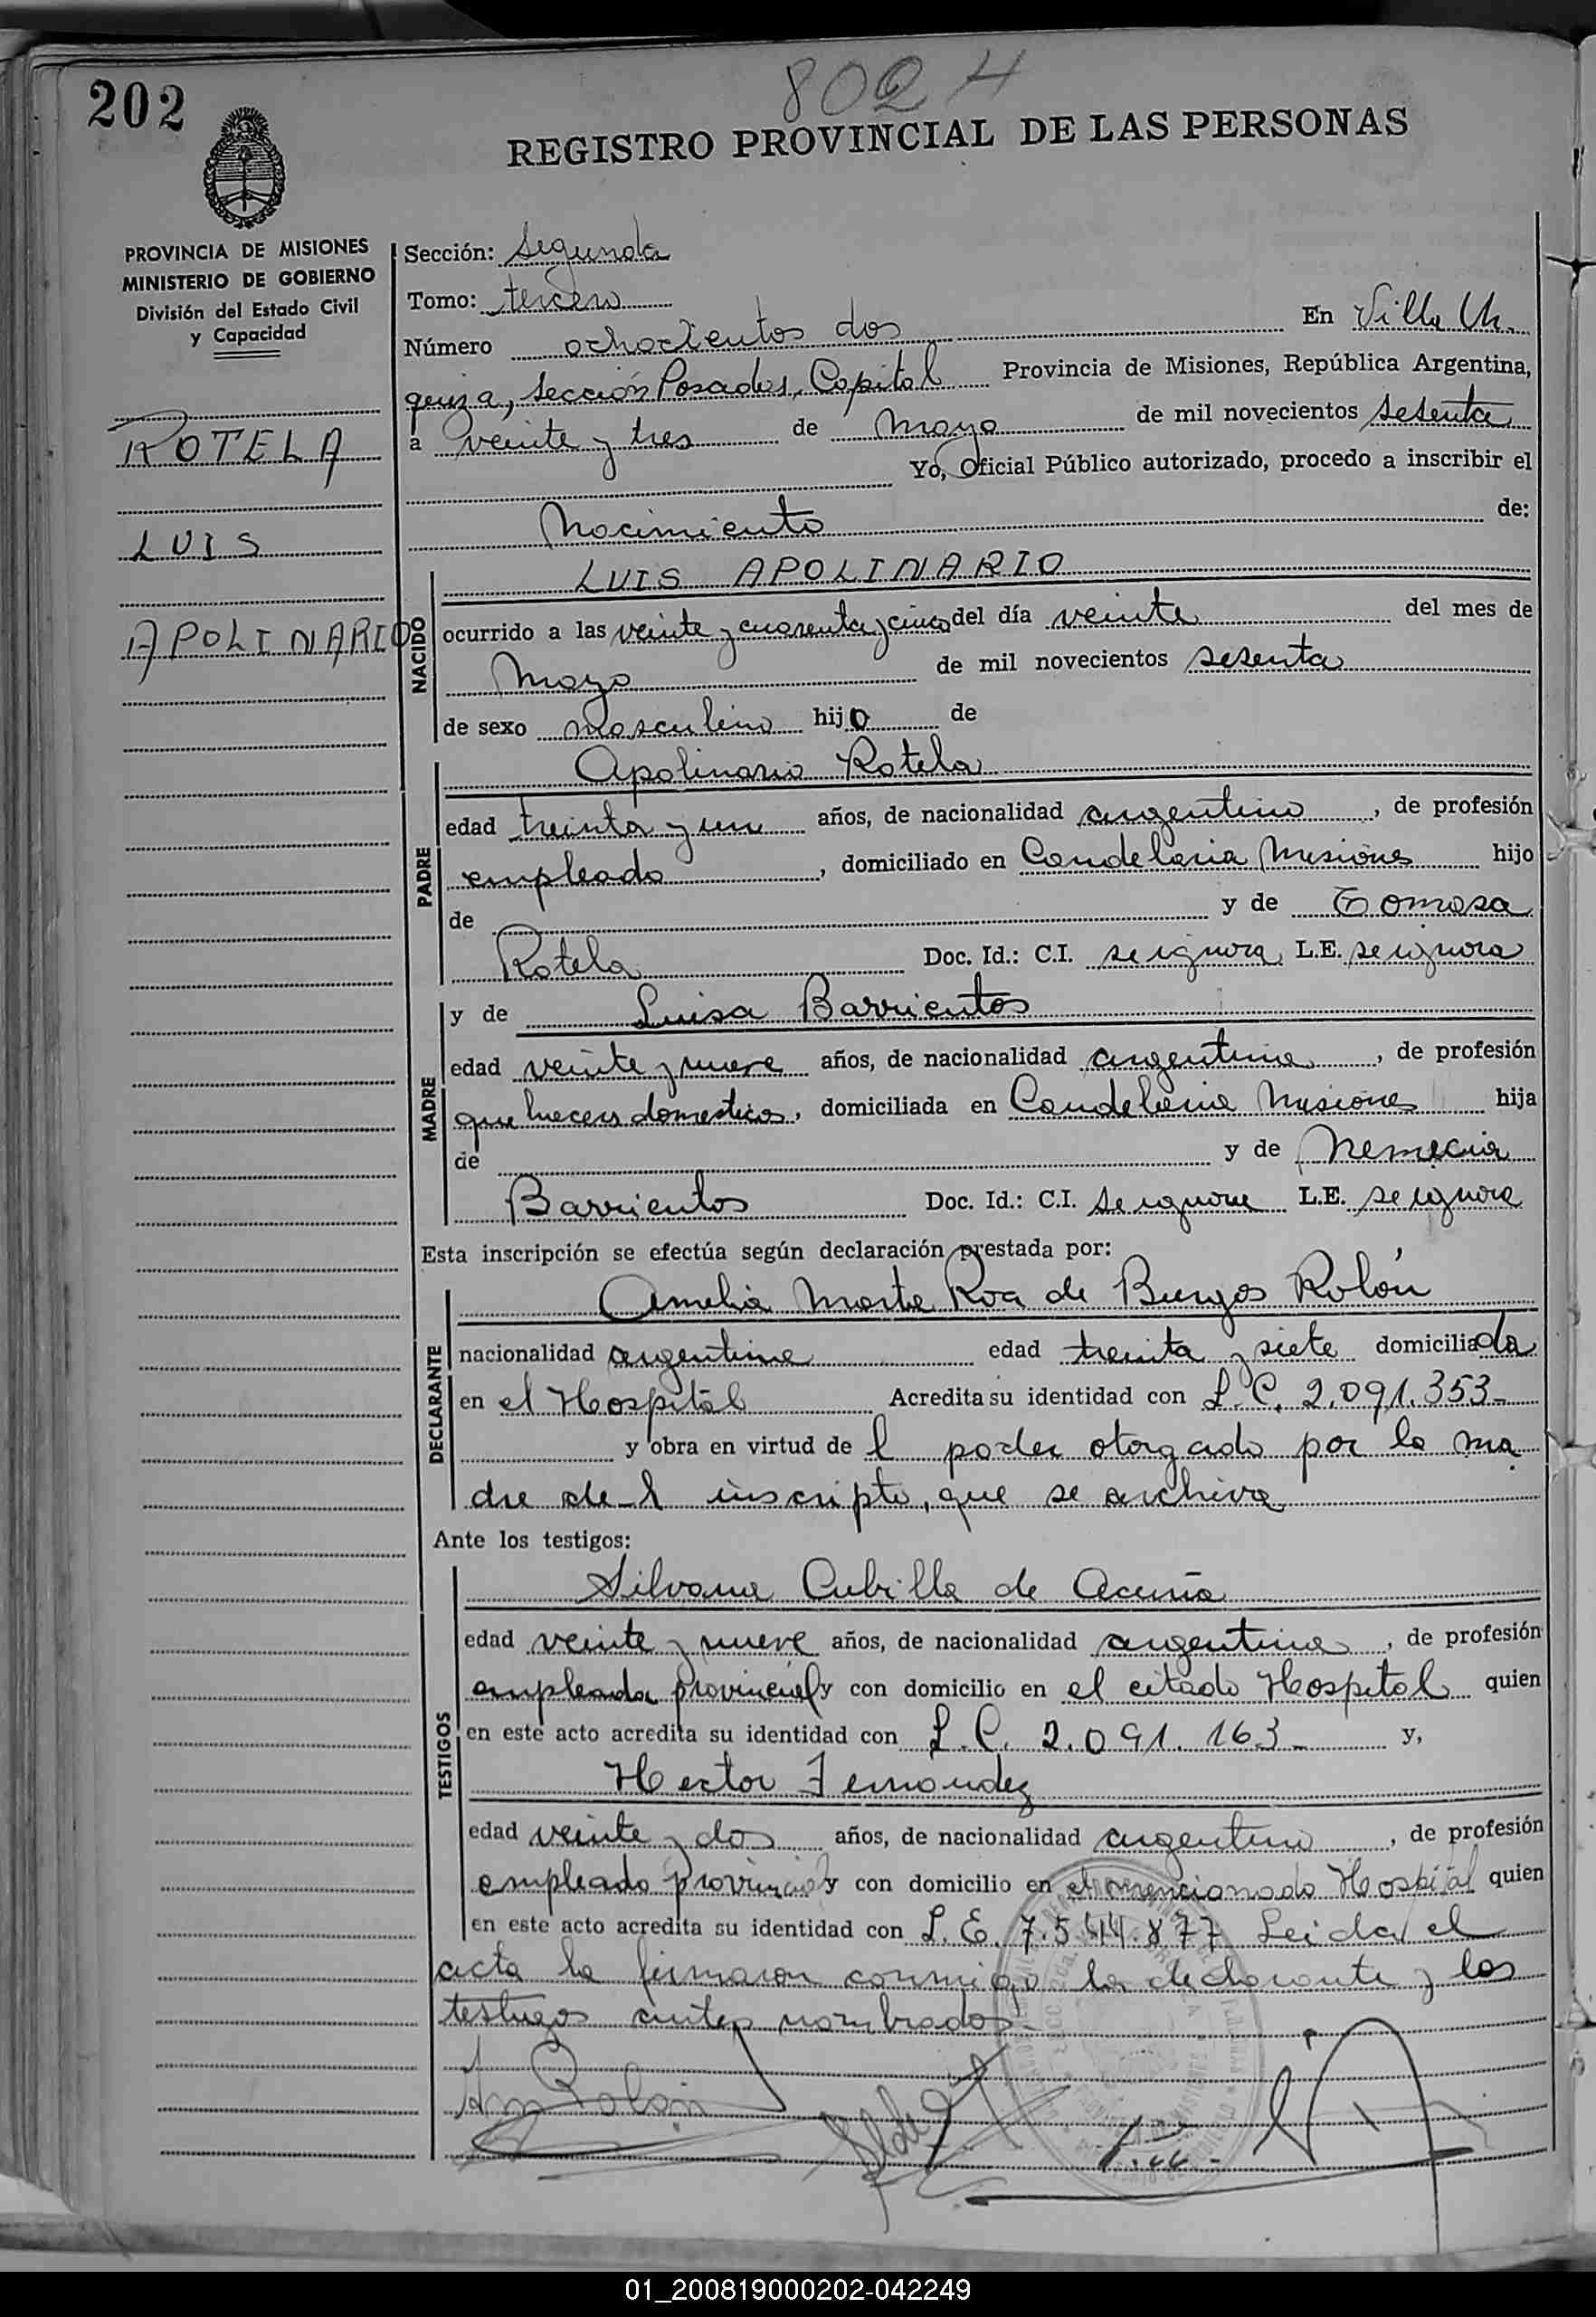 202
802 H
REGISTRO PROVINCIAL DE LAS PERSONAS
PROVINCIA DE MISIONES
MINISTERIO DE GOBIERNO
División del Estado Civil
y Capacidad
ROTELA
LUIS
APOLINARIO
Sección: Segunda
Tomo: tercero
Número ochocientos dos En Villa Ur
quiza, sección Posadas, Capital Provincia de Misiones, República Argentina,
a veinte y tres de Mayo de mil novecientos sesenta
Yo, Oficial Público autorizado, procedo a inscribir el
Nacimiento de:
NACIDO
LUIS APOLINARIO
ocurrido a las veinte y cuarenta y cinco del día veinte del mes de
Mayo de mil novecientos sesenta
de sexo masculino hijo de
PADRE
Apolinario Rotela
edad treinta y un años, de nacionalidad argentino, de profesión
empleado, domiciliado en Candelaria Misiones hijo
de y de Tomasa
Rotela Doc. Id.: C.I. se ignora L.E. se ignora
MADRE
y de Luisa Barrientos
edad veinte y nueve años, de nacionalidad argentina, de profesión
que haceres domesticos, domiciliada en Candelaria Misiones hija
de y de Nemecia
Barrientos Doc. Id.: C.I. Se ignora L.E. se ignora
Esta inscripción se efectúa según declaración prestada por:
DECLARANTE
Amelia Marta Roa de Burgos Rolón
nacionalidad argentina edad treinta y siete domiciliada
en el Hospital Acredita su identidad con L.C. 2.091.353-
y obra en virtud de l poder otorgado por la ma
dre de-l inscripto, que se archiva
Ante los testigos:
TESTIGOS
Silvana Cubilla de Acuña
edad veinte y nueve años, de nacionalidad argentina, de profesión
empleada provincial y con domicilio en el citado Hospital quien
en este acto acredita su identidad con L.C. 2.091.163- y,
Hector Fernandez
edad veinte y dos años, de nacionalidad argentino, de profesión
empleado provincial y con domicilio en el mencionado Hospital quien
en este acto acredita su identidad con L.E. 7.544.877 Leida el
acta la firmaron conmigo la declarante y los
testigos antes nombrados-
01_200819000202-042249